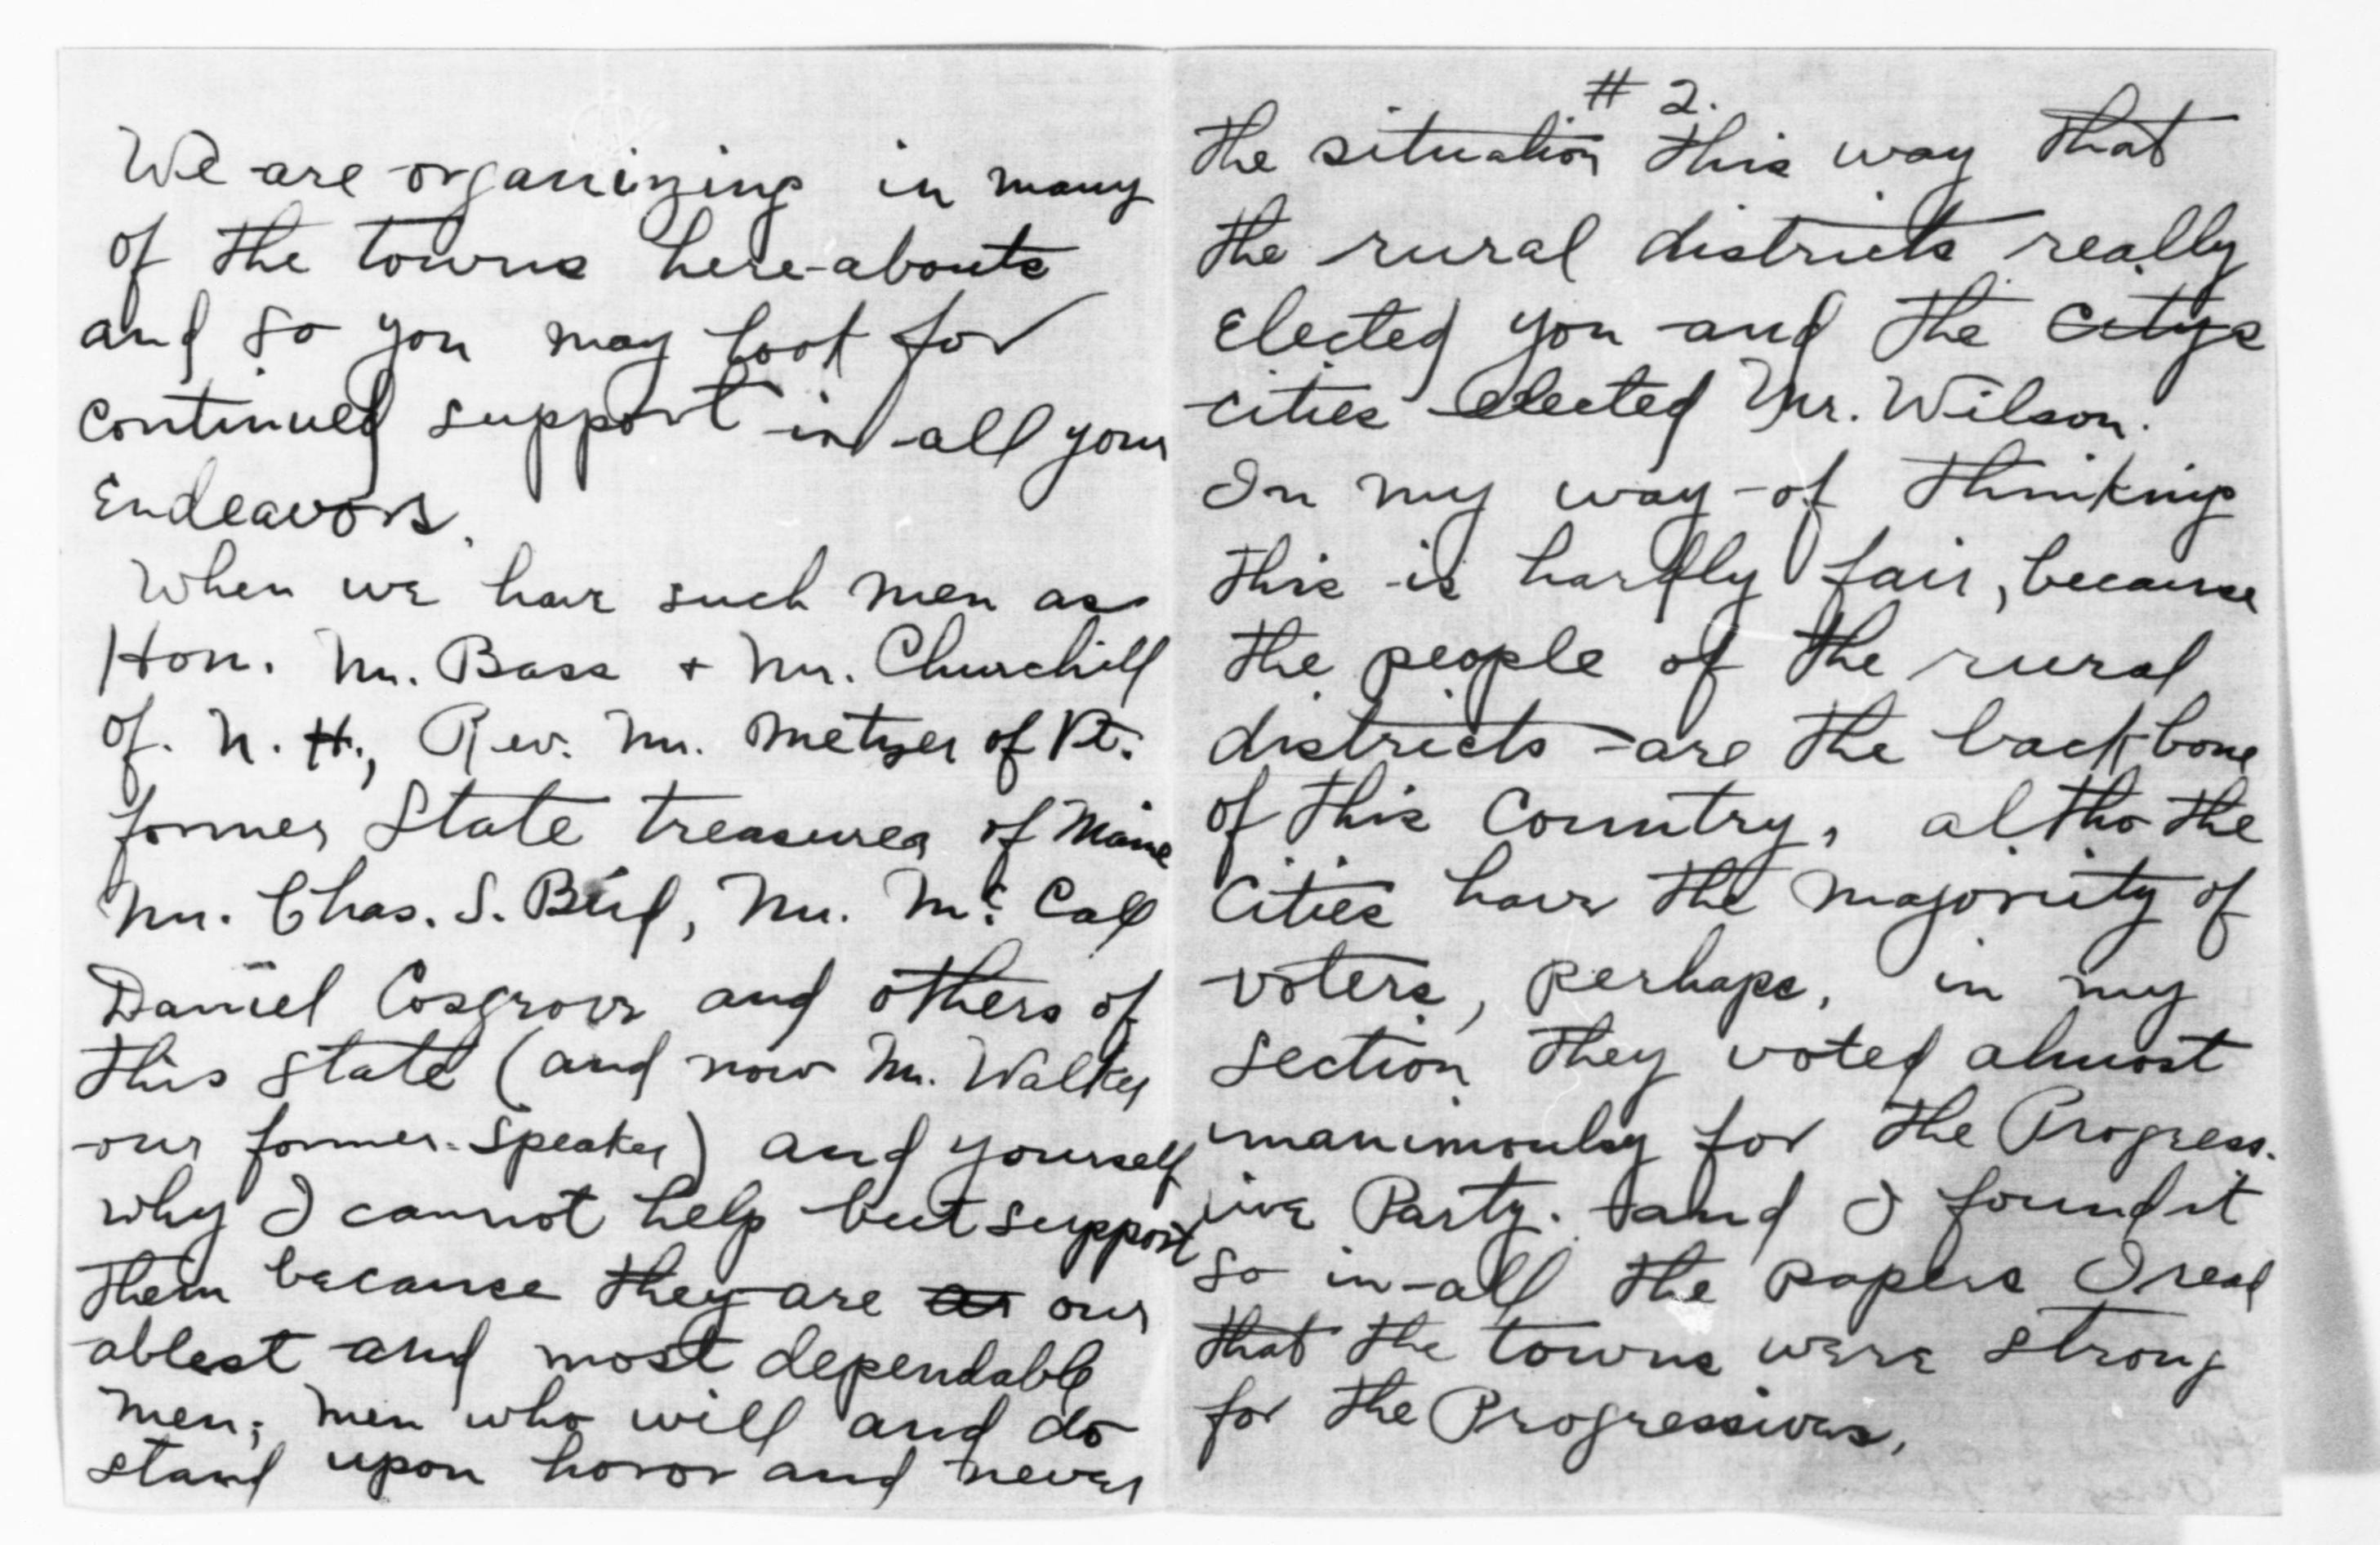 We are organizing in many
of the towns here-abouts
and so you may look for
continued support in all your
Endeavors.
When we have such men as
Hon. Mr. Bass + Mr. Churchill
of. N. H., Rev. Mr. Metzger of Vt.
former State treasurer of Maine
Mr. Chas. S. Bird, Mr. Mc. Call
Daniel Cosgrove and others of
this state (and now Mr. Walker
our former Speaker) and yourself
why I cannot help but support
them because they are as our
ablest and most dependable
men; men who will and do
stand upon honor and never
# 2.
the situation this way that
the rural districts really
elected you and the citys
cities elected Mr. Wilson.
In my way of thinking
this is hardly fair, because
the people of the rural
districts are the back bone
of this Country, altho the
Cities have the majority of
voters, perhaps, in my
section they voted almost
unanimously for the Progress-
ive Party. and I found it
so in all the papers I read
that the towns were strong
for the Progressives.